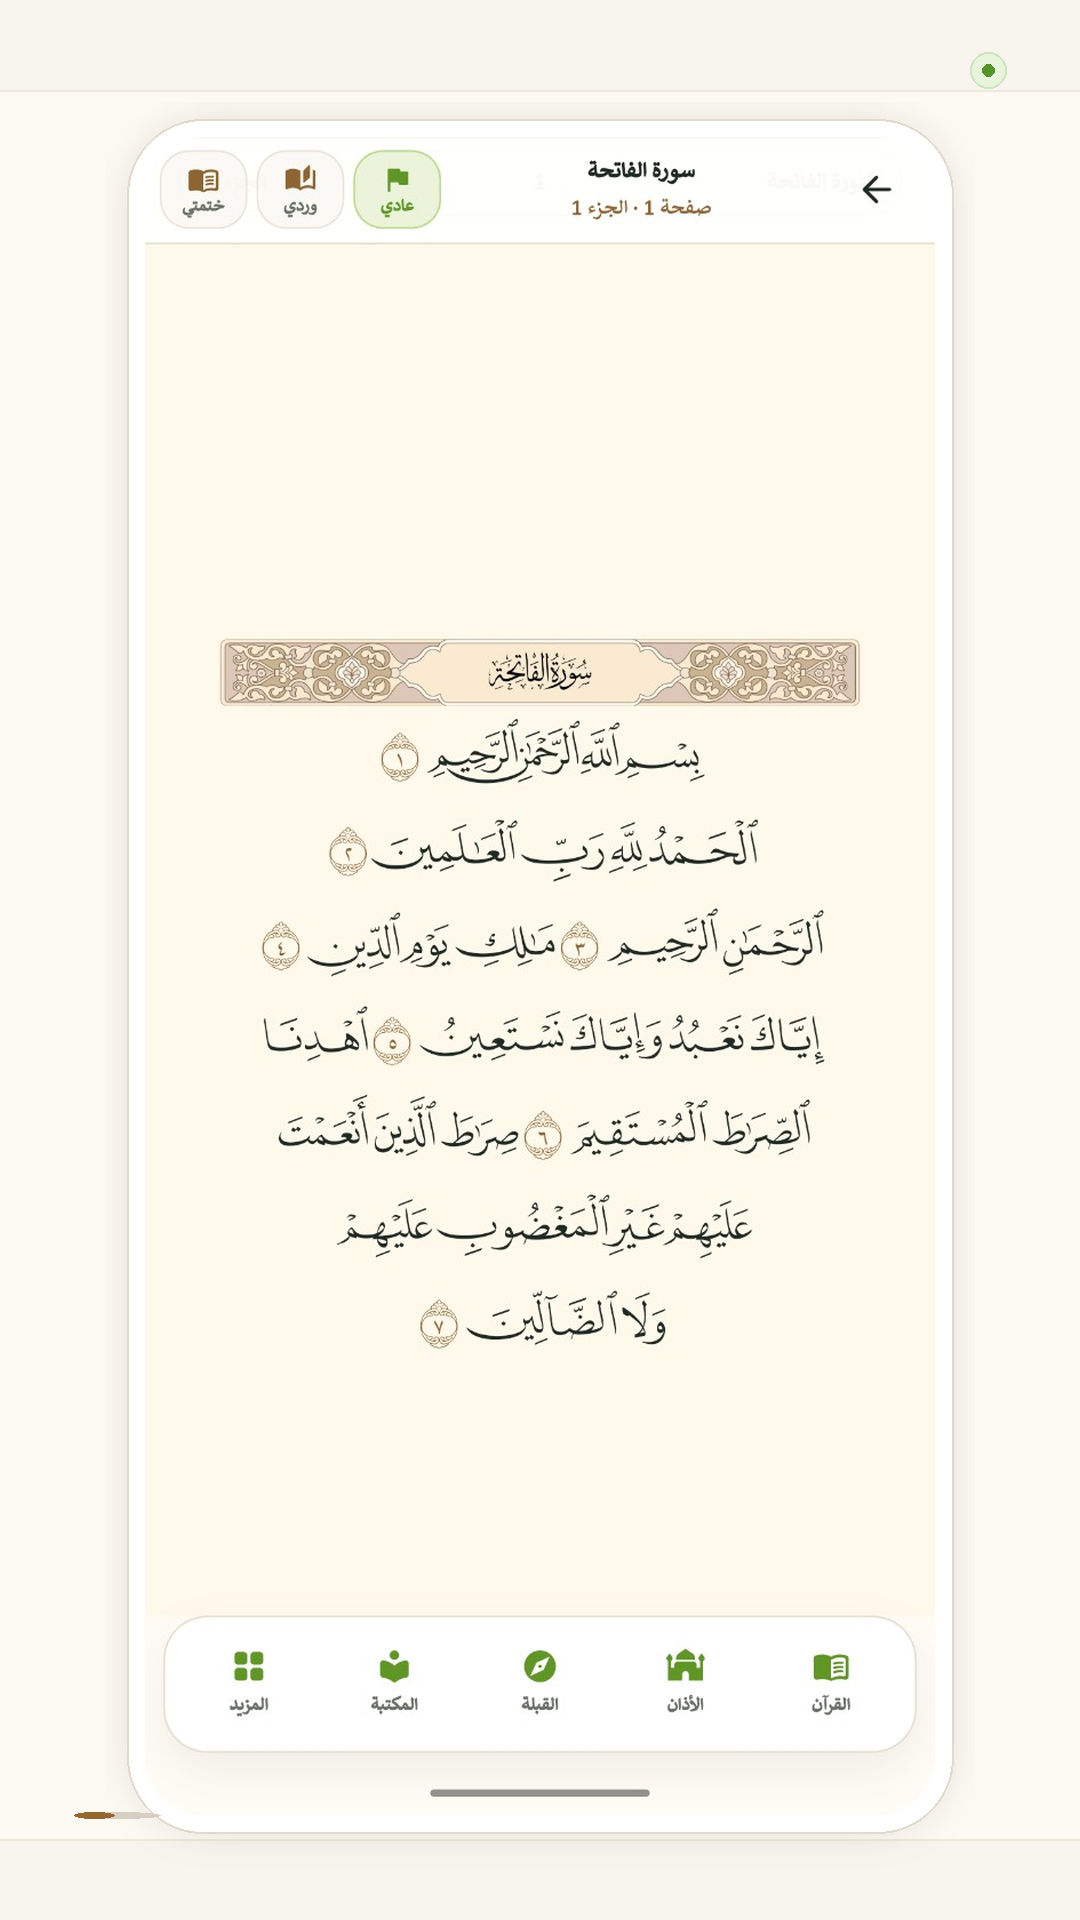 سورة الفاتحة
صفحة 1 · الجزء 1
عادي
وردي
ختمتي
سُورَةُ الْفَاتِحَةِ
بِسْمِ ٱللَّهِ ٱلرَّحْمَٰنِ ٱلرَّحِيمِ ١
ٱلْحَمْدُ لِلَّهِ رَبِّ ٱلْعَٰلَمِينَ ٢
ٱلرَّحْمَٰنِ ٱلرَّحِيمِ ٣ مَٰلِكِ يَوْمِ ٱلدِّينِ ٤
إِيَّاكَ نَعْبُدُ وَإِيَّاكَ نَسْتَعِينُ ٥ ٱهْدِنَا
ٱلصِّرَٰطَ ٱلْمُسْتَقِيمَ ٦ صِرَٰطَ ٱلَّذِينَ أَنْعَمْتَ
عَلَيْهِمْ غَيْرِ ٱلْمَغْضُوبِ عَلَيْهِمْ
وَلَا ٱلضَّآلِّينَ ٧
القرآن
الأذان
القبلة
المكتبة
المزيد